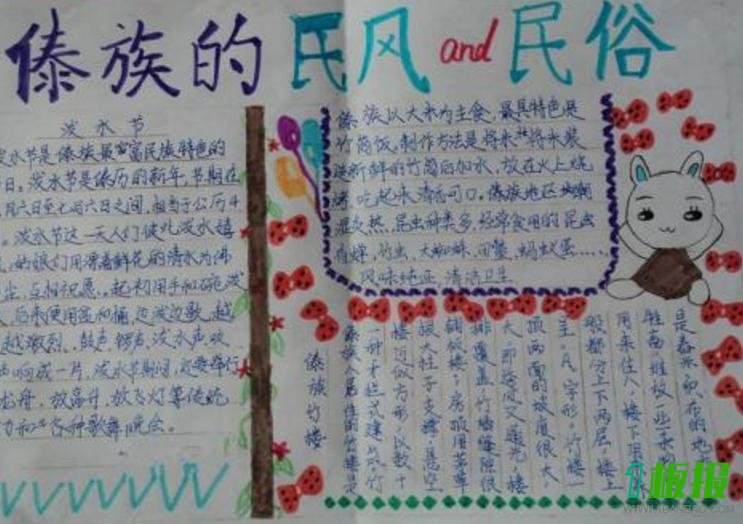 傣族的民风and民俗
泼水节
水节是傣族最富民族特色的
日。泼水节是傣历的新年,节期在
月六日至七月六日之间,相当于公历4
。泼水节这一天人们彼此泼水嬉
姑娘们用漂着鲜花的清水为佛
尘,互相祝愿。起初用手和碗泼
后来使用盆和桶,边泼边歌,越
越激烈,鼓声、锣声、泼水声欢
响成一片,泼水节期间,还要举行
龙舟、放高升、放飞灯等传统
和各种歌舞晚会。
傣族以大米为主食,最具特色是
竹筒饭。制作方法是将米将米装
进新鲜的竹筒后加水,放在火上烧
烤,吃起来清香可口。傣族地区
湿炎热,昆虫种类多,经常食用的昆虫
有蝉、竹虫、大蜘蛛、田鳖、蚂蚁蛋……
风味纯正,清洁卫生
傣族竹楼
傣族人居住的竹楼是
一种干栏式建筑。竹
楼近似方形,以数十
根大柱子支撑,悬空
铺楼;房顶用茅草
排覆盖,竹墙缝隙很
大,既通风又透光,楼
顶两面的坡度很大
呈“人”字形。竹楼一
般都分上下两层,楼上
用来住人,楼下
牲畜,堆放一些
是舂米织布的地
板报
WWW.1BANBAO.COM